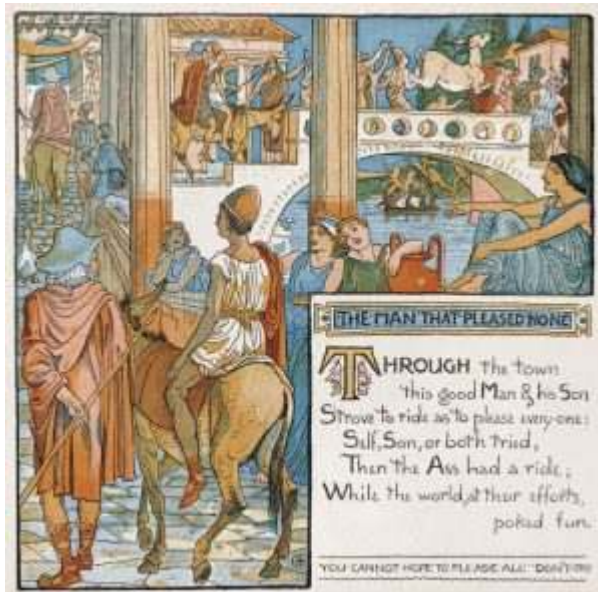 THE MAN THAT PLEASED NONE
THROUGH the town
this good Man & his Son
Strove to ride as to please every-one:
Self, Son, or both tried,
Then the Ass had a ride;
While the world, at their efforts,
poked fun.
YOU CANNOT HOPE TO PLEASE ALL · DON'T TRY